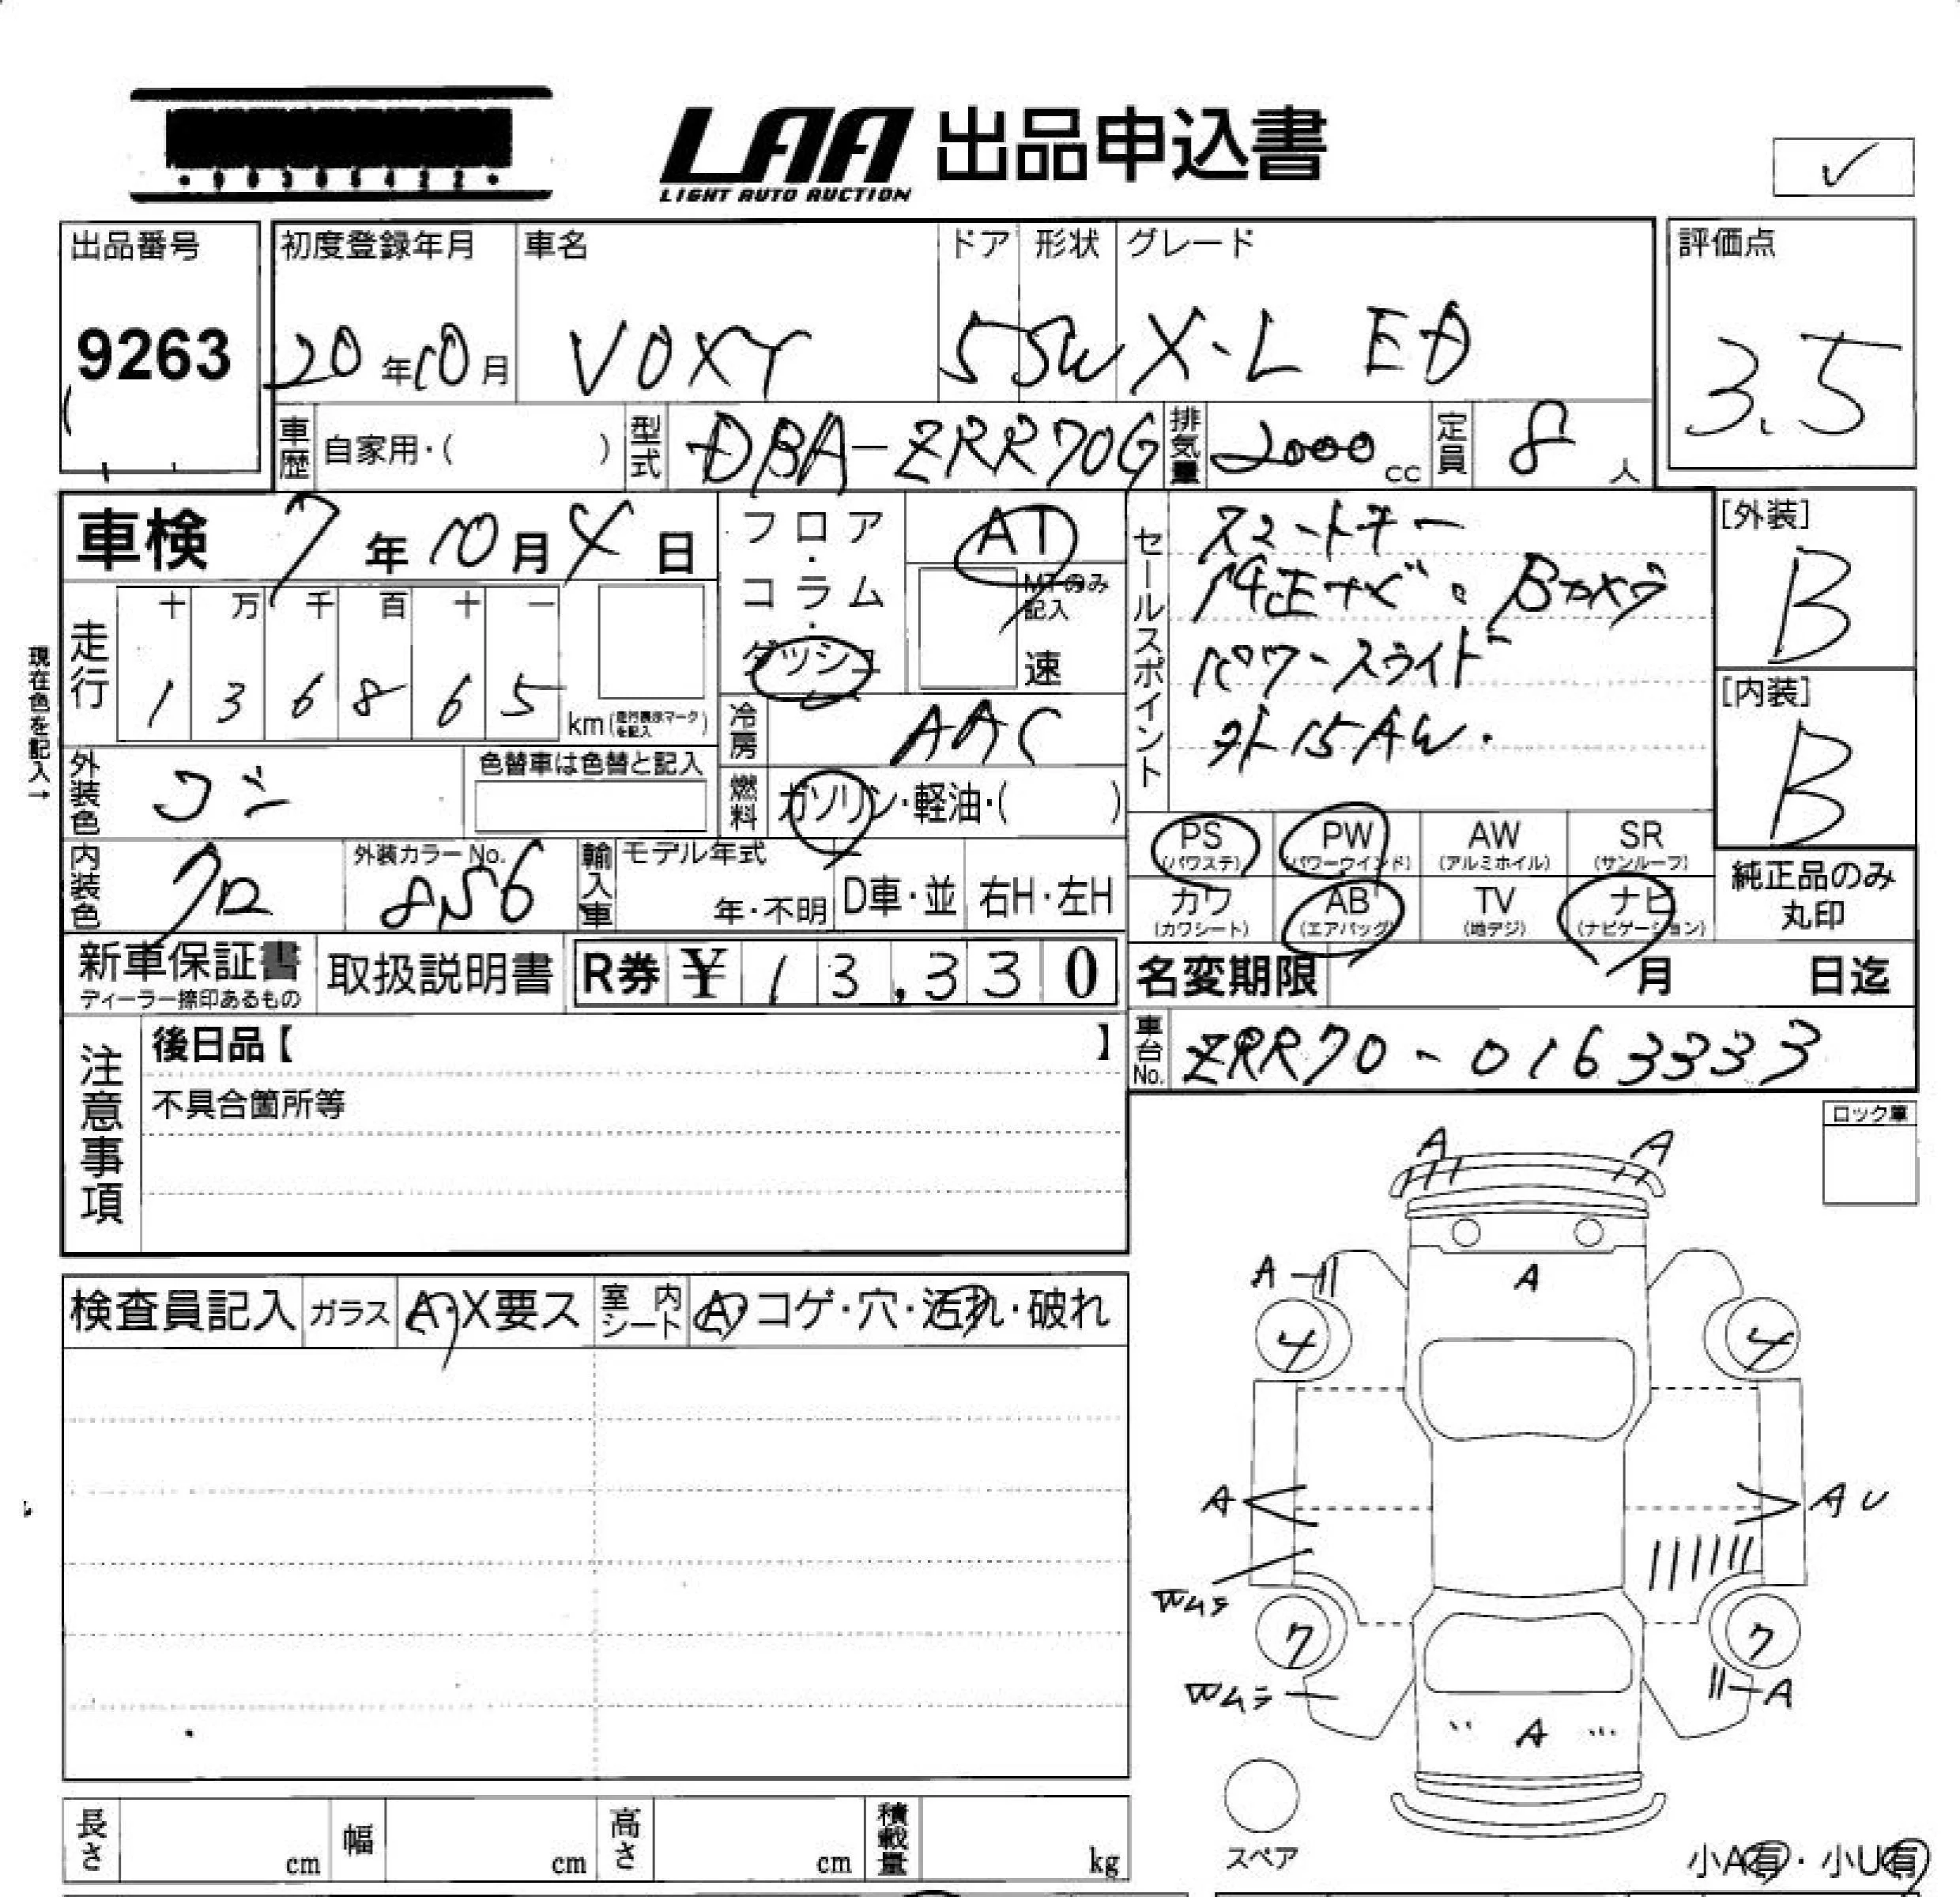 LAA 出品申込書
LIGHT AUTO AUCTION
✓
出品番号
9263
初度登録年月
20年10月
車名
VOXY
ドア
5
形状
SW
グレード
X-L ED
評価点
3.5
車歴 自家用・( )
型式 DBA-ZRR70G
排気量 2000 cc
定員 8 人
車検 7年10月4日
フロア・コラム・ダッシュ
AT
MTのみ記入
速
セールスポイント
スマートキー
純正ナビ。Bカメラ
パワースライド
外15AW.
[外装]
B
[内装]
B
現在色を記入→
走行
十 万 千 百 十 一
1 3 6 8 6 5
km(走行表示マークを記入)
冷房 AAC
燃料 ガソリン・軽油・( )
外装色
色替車は色替と記入
内装色 クロ
外装カラーNo.
8S6
輸入車
モデル年式
年・不明
D車・並
右H・左H
PS (パワステ)
PW (パワーウインド)
AW (アルミホイル)
SR (サンルーフ)
カワ (カワシート)
AB (エアバッグ)
TV (地デジ)
ナビ (ナビゲーション)
純正品のみ
丸印
新車保証書
ディーラー捺印あるもの
取扱説明書
R券 ¥13,330
名変期限 月 日迄
車台No. ZRR70-0163333
注意事項
後日品【 】
不具合箇所等
ロック車
検査員記入
ガラス A・X要ス
室内シート A・コゲ・穴・汚れ・破れ
A A
A A
4 4
A AU
Wムラ
7 7
Wムラ A
A
スペア
小A有・小U有
長さ cm
幅 cm
高さ cm
積載量 kg